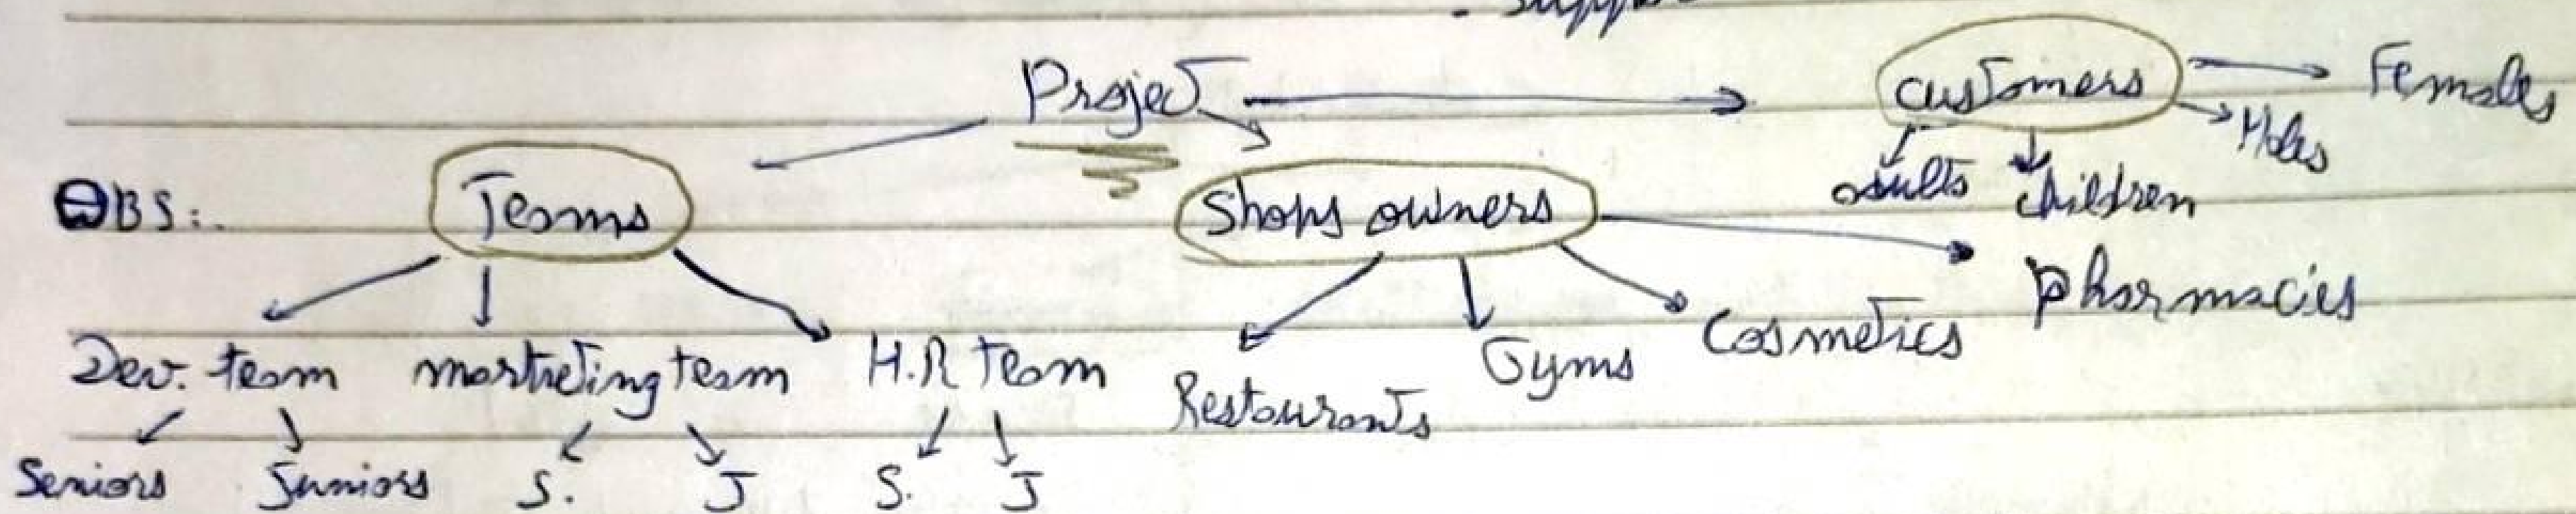 Project
customers
Females
Males
adults
children
OBS:.
Teams
Shops owners
pharmacies
Dev. team
marketing team
H.R team
Restaurants
Gyms
Cosmetics
Seniors
Juniors
S.
J
S.
J